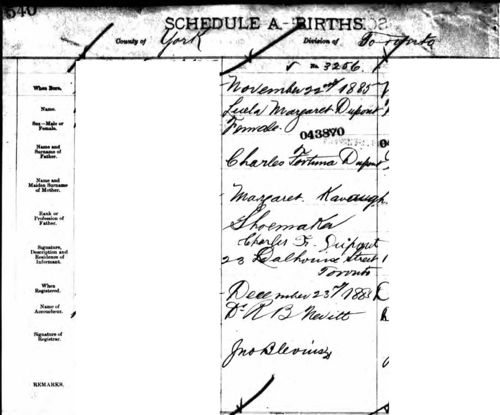 540
SCHEDULE A.—BIRTHS.
County of York Division of Toronto
No. 3256
When Born. November 22nd 1885
Name. Luela Margaret Dupont
Sex—Male or Female. Female.
043870
Name and Surname of Father. Charles Fortuna Dupont
Name and Maiden Surname of Mother. Margaret Kavanagh
Rank or Profession of Father. Shoemaker
Signature, Description and Residence of Informant. Charles F. Dupont
23 Dalhousie Street
Toronto
When Registered. December 23rd 1885
Name of Accoucheur. Dr R B Nevitt
Signature of Registrar. Jno Blevins
REMARKS.